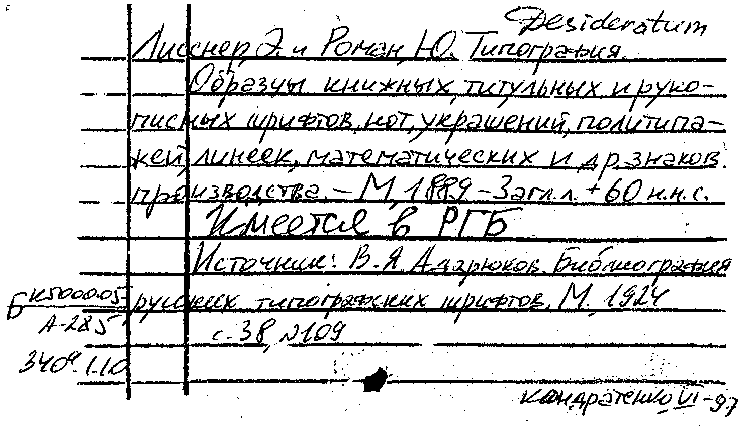 Desideratum
Лисснер, Э. и Роман, Ю. Типография.
Образцы книжных, титульных и руко-
писных шрифтов, нот, украшений, политипа-
жей, линеек, математических и др. знаков.
производства. – М, 1889 – Загл.л. + 60 н.н.с.
Имеется в РГБ
Источник: В.Я. Адарюков. Библиография
русских типографских шрифтов. М. 1924
с. 38, №109
Б К500005
А-285
340.1.10
Кандратенко VI-97